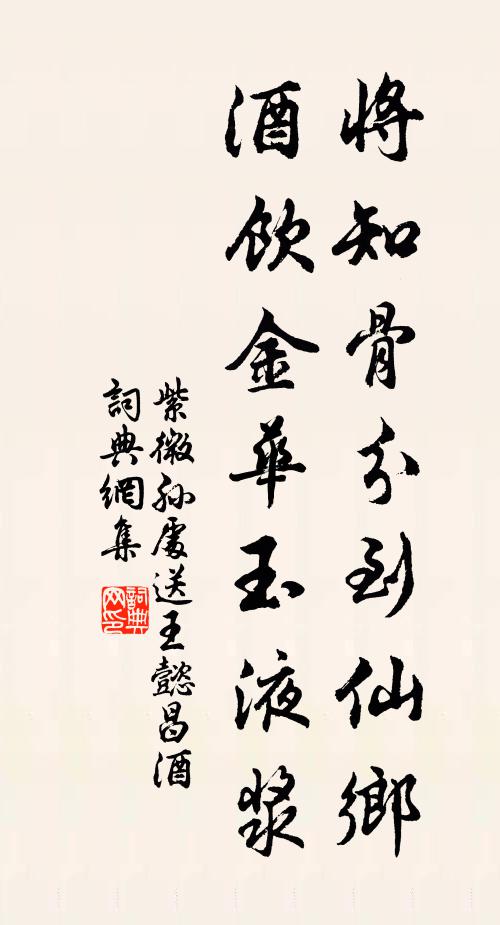 將知骨分到仙鄉
酒飲金華玉液漿
紫微孫處送王懿昌酒
詞典網集
詞典网印